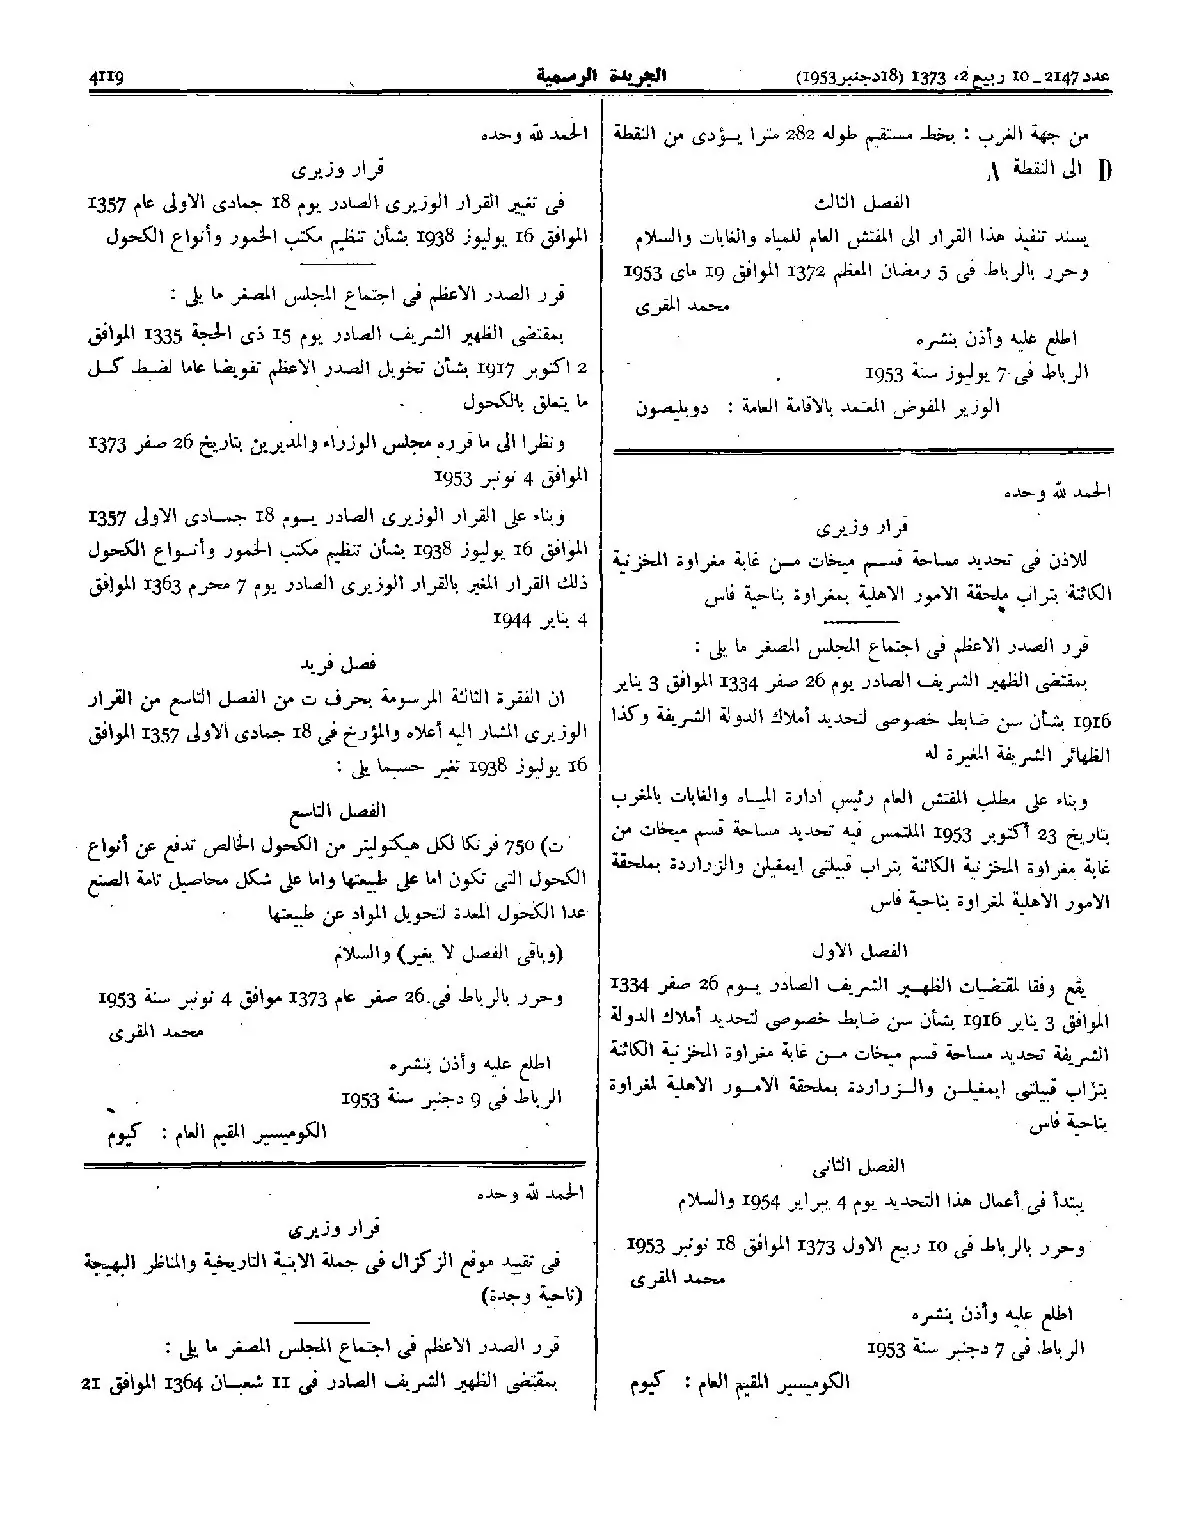 عدد 2147 ـ 10 ربيع 2، 1373 (18 دجنبر 1953)
الجريدة الرسمية
4119
من جهة الغرب : بخط مستقيم طوله 282 مترا يـؤدى من النقطة
D الى النقطة A
الفصل الثالث
يسند تنفيذ هذا القرار الى المفتش العام للمياه والغابات والسلام
وحرر بالرباط فى 5 رمضان المعظم 1372 الموافق 19 ماى 1953
محمد المقرى
اطلع عليه وأذن بنشره
الرباط فى 7 يوليوز سنة 1953
الوزير المفوض المعتمد بالاقامة العامة : دوبليصون
الحمد لله وحده
قرار وزيرى
للاذن فى تحديد مساحة قسم ميخات من غابة مغراوة المخزنية
الكائنة بتراب ملحقة الامور الاهلية بمغراوة بناحية فاس
قرر الصدر الاعظم فى اجتماع المجلس المصغر ما يلى :
بمقتضى الظهير الشريف الصادر يوم 26 صفر 1334 الموافق 3 يناير
1916 بشأن سن ضابط خصوصى لتحديد أملاك الدولة الشريفة وكذا
الظهائر الشريفة المغيرة له
وبناء على مطلب المفتش العام رئيس ادارة المياه والغابات بالمغرب
بتاريخ 23 أكتوبر 1953 الملتمس فيه تحديد مساحة قسم ميخات من
غابة مغراوة المخزنية الكائنة بتراب قبيلتى ايمغيلن والزراردة بملحقة
الامور الاهلية لمغراوة بناحية فاس
الفصل الاول
يقع وفقا لمقتضيات الظهير الشريف الصادر يوم 26 صفر 1334
الموافق 3 يناير 1916 بشأن سن ضابط خصوصى لتحديد أملاك الدولة
الشريفة تحديد مساحة قسم ميخات من غابة مغراوة المخزنية الكائنة
بتراب قبيلتى ايمغيلن والزراردة بملحقة الامور الاهلية لمغراوة
بناحية فاس
الفصل الثانى
يبتدأ فى أعمال هذا التحديد يوم 4 يبراير 1954 والسلام
وحرر بالرباط فى 10 ربيع الاول 1373 الموافق 18 نونبر 1953
محمد المقرى
اطلع عليه وأذن بنشره
الرباط فى 7 دجنبر سنة 1953
الكوميسير المقيم العام : كيوم
الحمد لله وحده
قرار وزيرى
فى تغيير القرار الوزيرى الصادر يوم 18 جمادى الاولى عام 1357
الموافق 16 يوليوز 1938 بشأن تنظيم مكتب الخمور وأنواع الكحول
قرر الصدر الاعظم فى اجتماع المجلس المصغر ما يلى :
بمقتضى الظهير الشريف الصادر يوم 15 ذى الحجة 1335 الموافق
2 اكتوبر 1917 بشأن تخويل الصدر الاعظم تفويضا عاما لضبط كل
ما يتعلق بالكحول
ونظرا الى ما قرره مجلس الوزراء والمديرين بتاريخ 26 صفر 1373
الموافق 4 نونبر 1953
وبناء على القرار الوزيرى الصادر يوم 18 جمادى الاولى 1357
الموافق 16 يوليوز 1938 بشأن تنظيم مكتب الخمور وأنواع الكحول
ذلك القرار المغير بالقرار الوزيرى الصادر يوم 7 محرم 1363 الموافق
4 يناير 1944
فصل فريد
ان الفقرة الثالثة المرسومة بحرف ت من الفصل التاسع من القرار
الوزيرى المشار اليه أعلاه والمؤرخ فى 18 جمادى الاولى 1357 الموافق
16 يوليوز 1938 تغير حسبما يلى :
الفصل التاسع
ت) 750 فرنكا لكل هيكتوليتر من الكحول الخالص تدفع عن أنواع
الكحول التى تكون اما على طبيعتها واما على شكل محاصيل تامة الصنع
عدا الكحول المعدة لتحويل المواد عن طبيعتها
(وباقى الفصل لا يغير) والسلام
وحرر بالرباط فى 26 صفر عام 1373 موافق 4 نونبر سنة 1953
محمد المقرى
اطلع عليه وأذن بنشره
الرباط فى 9 دجنبر سنة 1953
الكوميسير المقيم العام : كيوم
الحمد لله وحده
قرار وزيرى
فى تقييد موقع الزكزال فى جملة الابنية التاريخية والمناظر البهيجة
(ناحية وجدة)
قرر الصدر الاعظم فى اجتماع المجلس المصغر ما يلى :
بمقتضى الظهير الشريف الصادر فى 11 شعبان 1364 الموافق 21